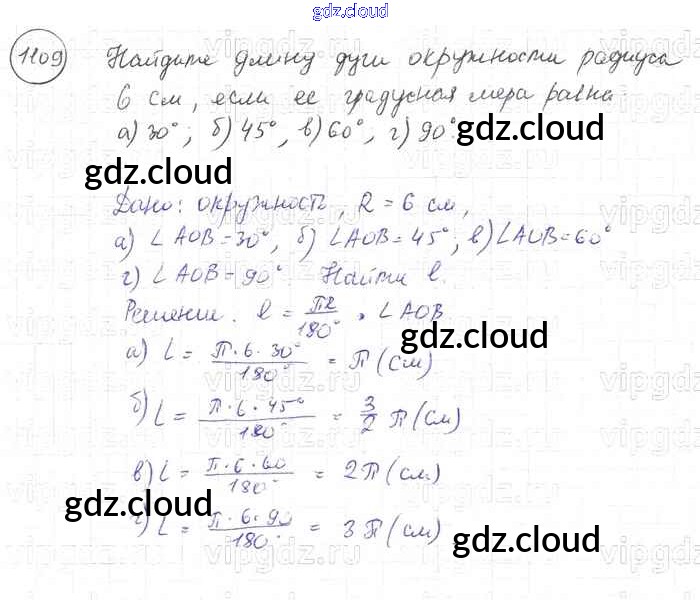 gdz.cloud
1109 Найдите длину дуги окружности радиуса
6 см, если ее градусная мера равна
а) 30°; б) 45°, в) 60°, г) 90°.
gdz.cloud
gdz.cloud
Дано: окружность, R = 6 см,
а) ∠AOB = 30°, б) ∠AOB = 45°; в) ∠AOB = 60°
г) ∠AOB = 90°. Найти l.
Решение. l = πR/180° · ∠AOB.
gdz.cloud
а) L = π·6·30°/180° = π (см)
б) L = π·6·45°/180° = 3/2 π (см)
в) L = π·6·60/180° = 2π (см)
gdz.cloud
г) L = π·6·90/180° = 3π (см)
gdz.cloud